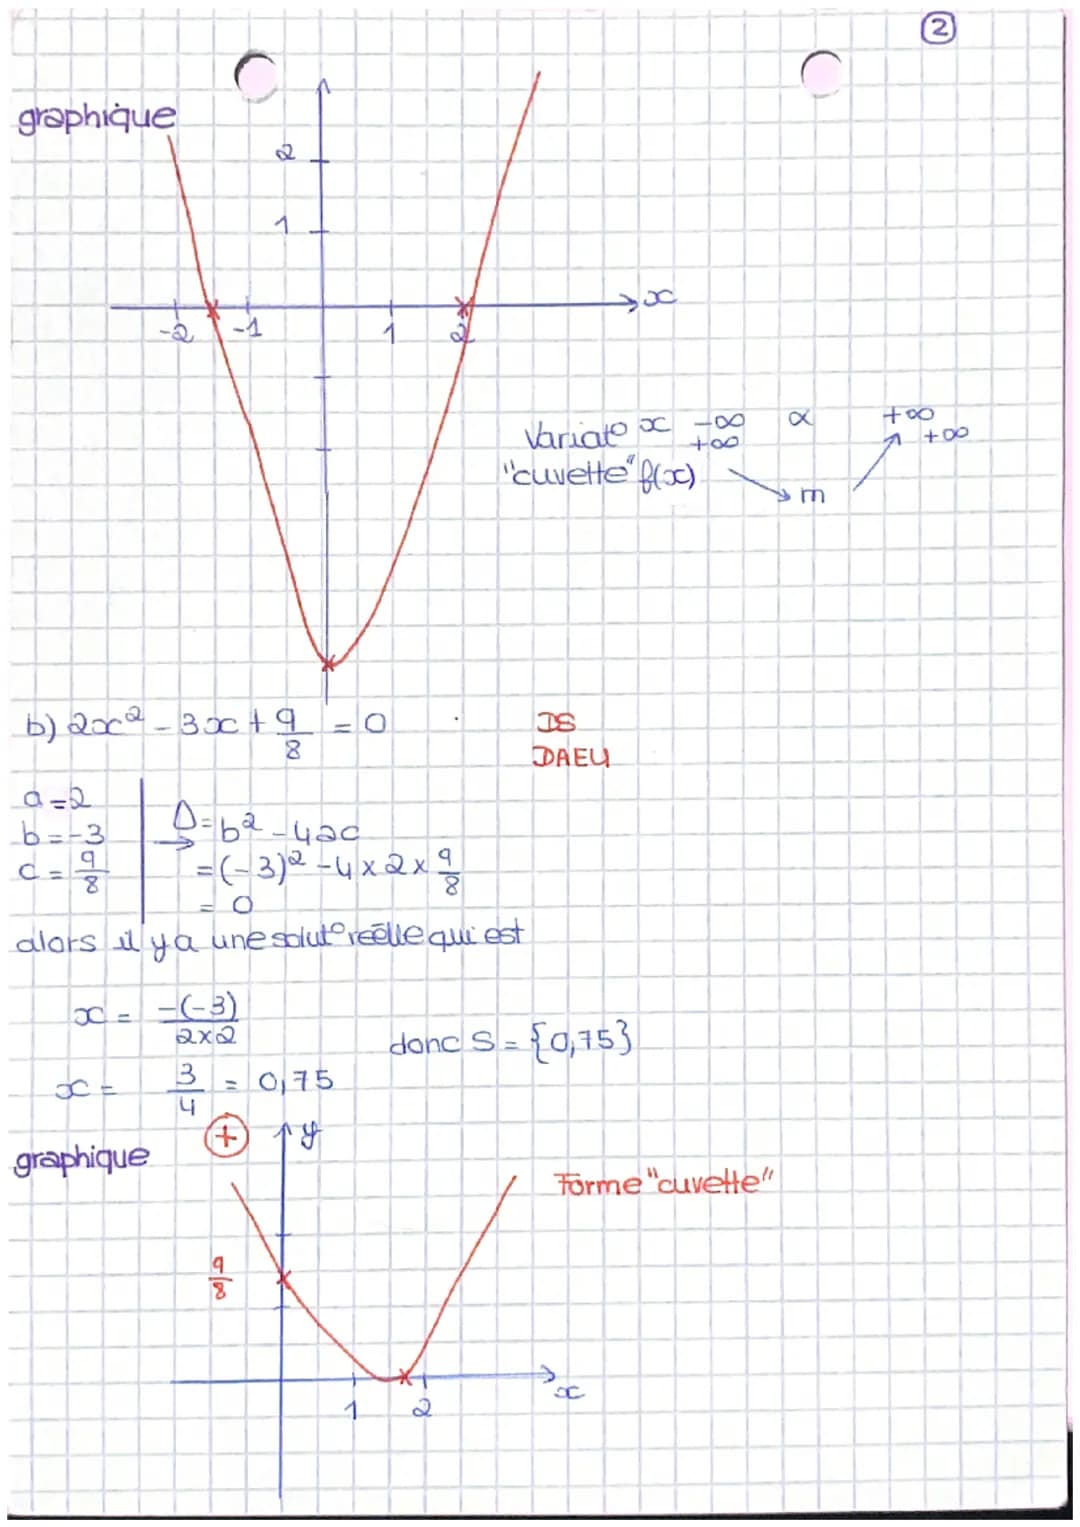 2
graphique
2
1
x
-2 -1 1 2
Variat° x -∞ α +∞
"cuvette" f(x) +∞ m +∞
b) 2x² - 3x + 9/8 = 0
DS
DAEU
a = 2
b = -3
c = 9/8
Δ = b² - 4ac
= (-3)² - 4 x 2 x 9/8
= 0
alors il y a une solut° réelle qui est
x = -(-3)/2x2
x = 3/4 = 0,75
donc S = {0,75}
graphique
+
y
Forme "cuvette"
9/8
x
1 2